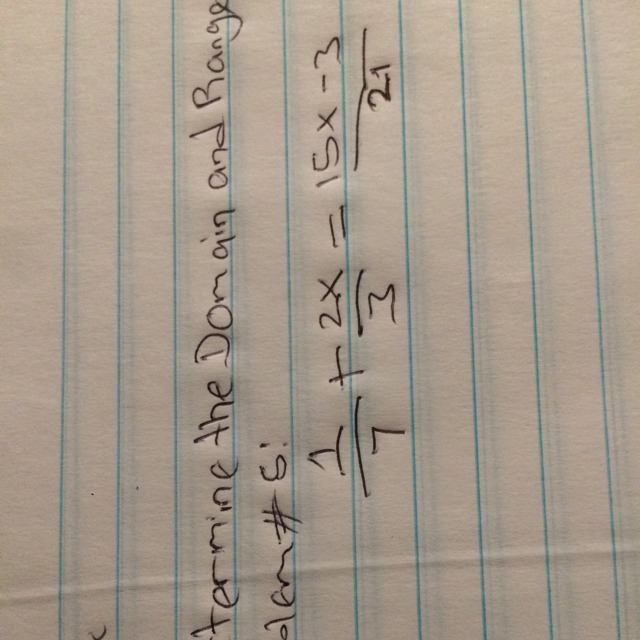 termine the Domain and Range
blem # 5:
1/7 + 2x/3 = 15x - 3/21
x